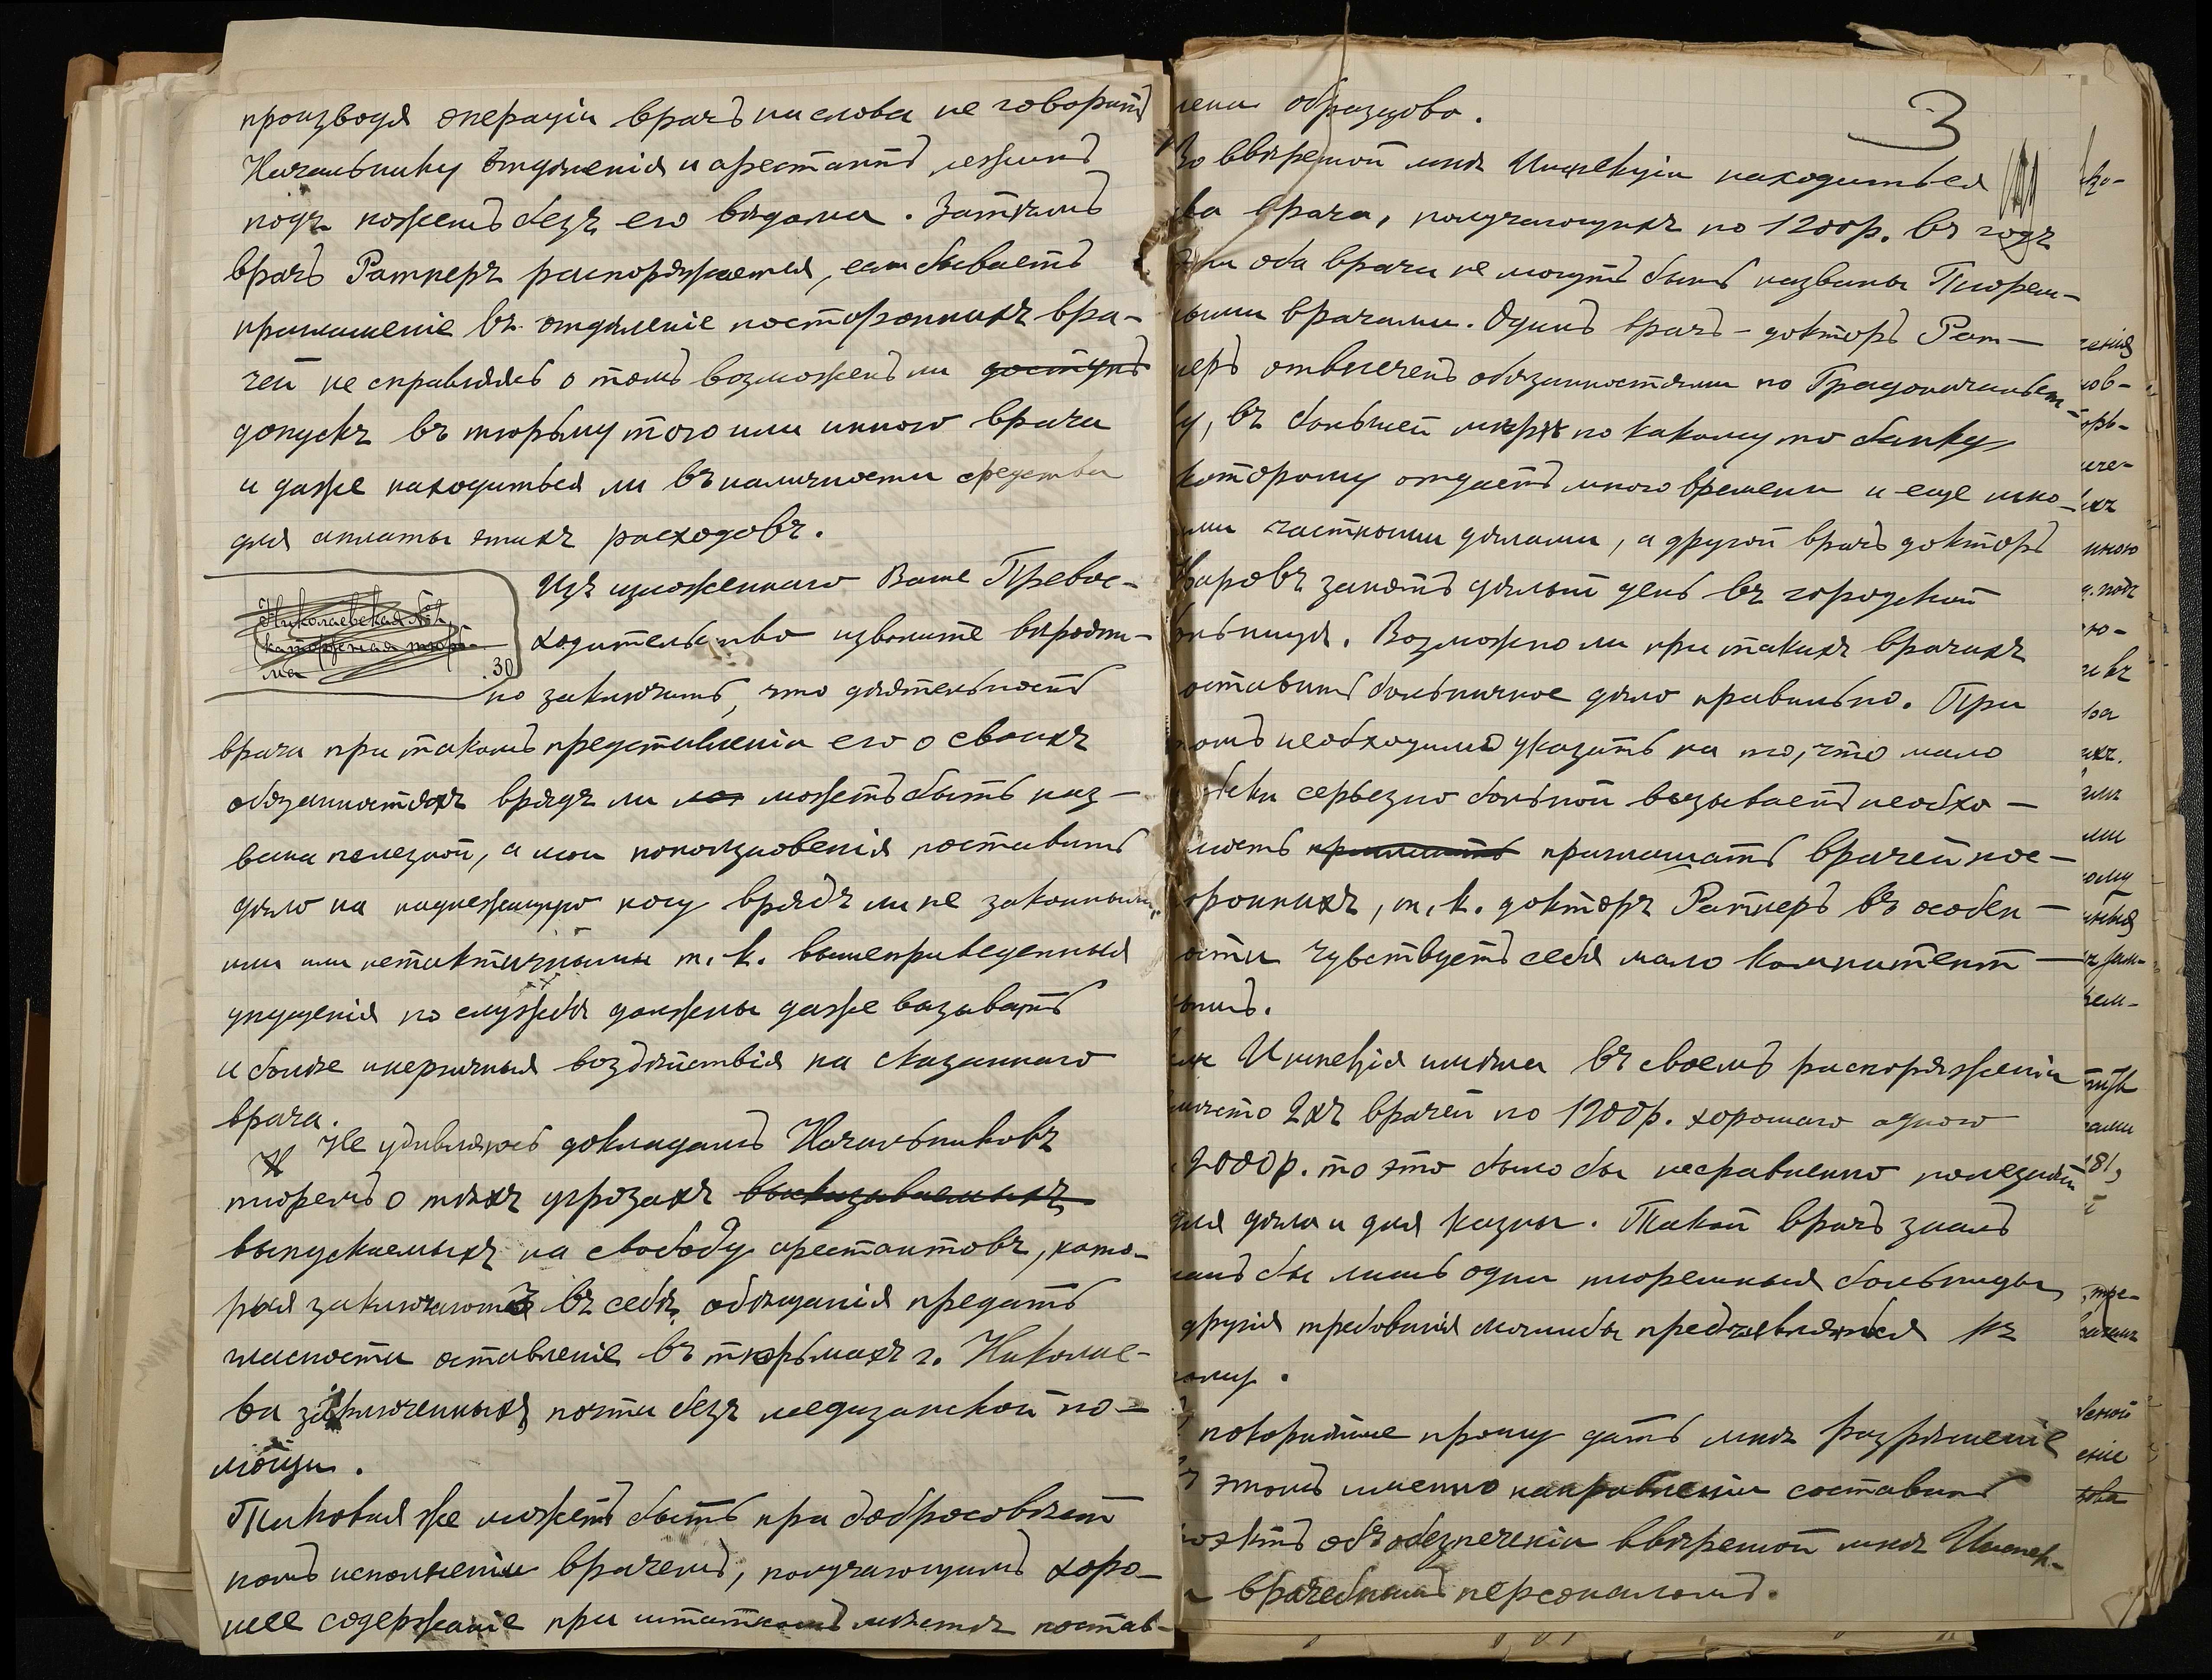 производя операціи врачъ ни слова не говоритъ
Начальнику отдѣленія и арестантъ лежитъ
подъ ножемъ безъ его вѣдома. Затѣмъ
врачъ Ратнеръ распоряжается, если бываетъ
приглашеніе въ отдѣленіе постороннихъ вра-
чей не справляясь о томъ возможенъ ли доступъ
допускъ въ тюрьму того или иного врача
и даже находиться ли въ наличности средства
для оплаты этихъ расходовъ.
Изъ изложеннаго Ваше Превос-
ходительство изволите вѣроят-
но заключить, что дѣятельность
Николаевская
каторжная тюрь-
ма
30
врача при такомъ представленіи его о своихъ
обязанностяхъ врядъ ли можетъ быть наз-
вана полезной, а мои поползновенія поставить
дѣло на надлежащую ногу врядъ ли не законными
или нетактичными т. к. вышеприведенныя
упущенія по службѣ должны даже вызывать
и болѣе энергичныя воздѣйствія на сказаннаго
врача.
Не удивляюсь докладамъ Начальниковъ
тюремъ о тѣхъ угрозахъ высказываемыхъ
выпускаемыхъ на свободу арестантовъ, кото-
рыя заключаютъ въ себѣ обѣщанія предать
гласности оставленіе въ тюрьмахъ г. Николае-
ва заключенныхъ почти безъ медицинской по-
мощи.
Таковая же можетъ быть при добросовѣст
номъ исполненіи врачемъ, получающимъ хоро-
шее содержаніе при штатномъ мѣстѣ постав-
лена образцово.
3
Во ввѣренной мнѣ Инспекціи находиться
два врача, получающихъ по 1200р. въ годъ
Эти оба врача не могутъ быть названы Тюрем-
ными врачами. Одинъ врачъ - докторъ Рат-
неръ отвлеченъ обязанностями по Градоначальст-
ву, въ большей мѣрѣ по какому то банку,
которому отдаетъ много времени и еще мно-
ими частными дѣлами, а другой врачъ докторъ
занятъ цѣлый день въ городской
больницѣ. Возможно ли при такихъ врачахъ
поставить больничное дѣло правильно. При
томъ необходимо указать на то, что мало
мальски серьезно больной вызываетъ необхо-
димость приглашать врачей пос-
тороннихъ, т. к. докторъ Ратнеръ въ особен-
ности чувствуетъ себя мало компитент-
нымъ.
Инспекція имѣла въ своемъ распоряженіи
вмѣсто 2хъ врачей по 1200р. хорошаго одного
2000р. то это было бы несравненно полезнѣй
для дѣла и для казны. Такой врачъ зналъ
бы лишь одни тюремныя больницы,
другія требованія могли бы предъявляться къ
ному.
покорнѣйше прошу дать мнѣ разрѣшеніе
этомъ именно направленіи составить
проэктъ объ обезпеченіи ввѣренной мнѣ Инспек-
врачебнымъ персоналомъ.